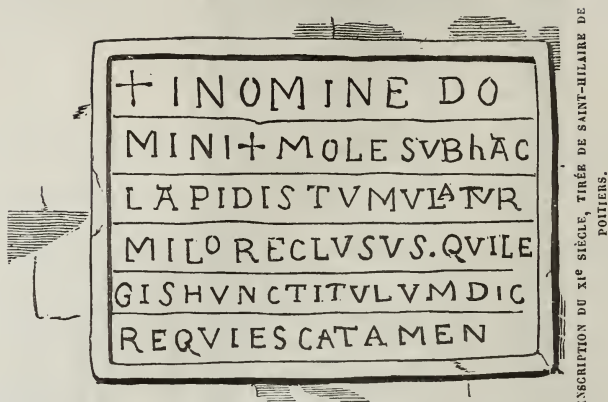 + INOMINE DO
MINI+ MOLE SVBhAC
LAPIDIS TVMVLATVR
MILO RECLVSVS. QVILE
GISHVNCTITVLVMDIC
REQVIESCATAMEN
INSCRIPTION DU XIe SIÈCLE, TIRÉE DE SAINT-HILAIRE DE
POITIERS.